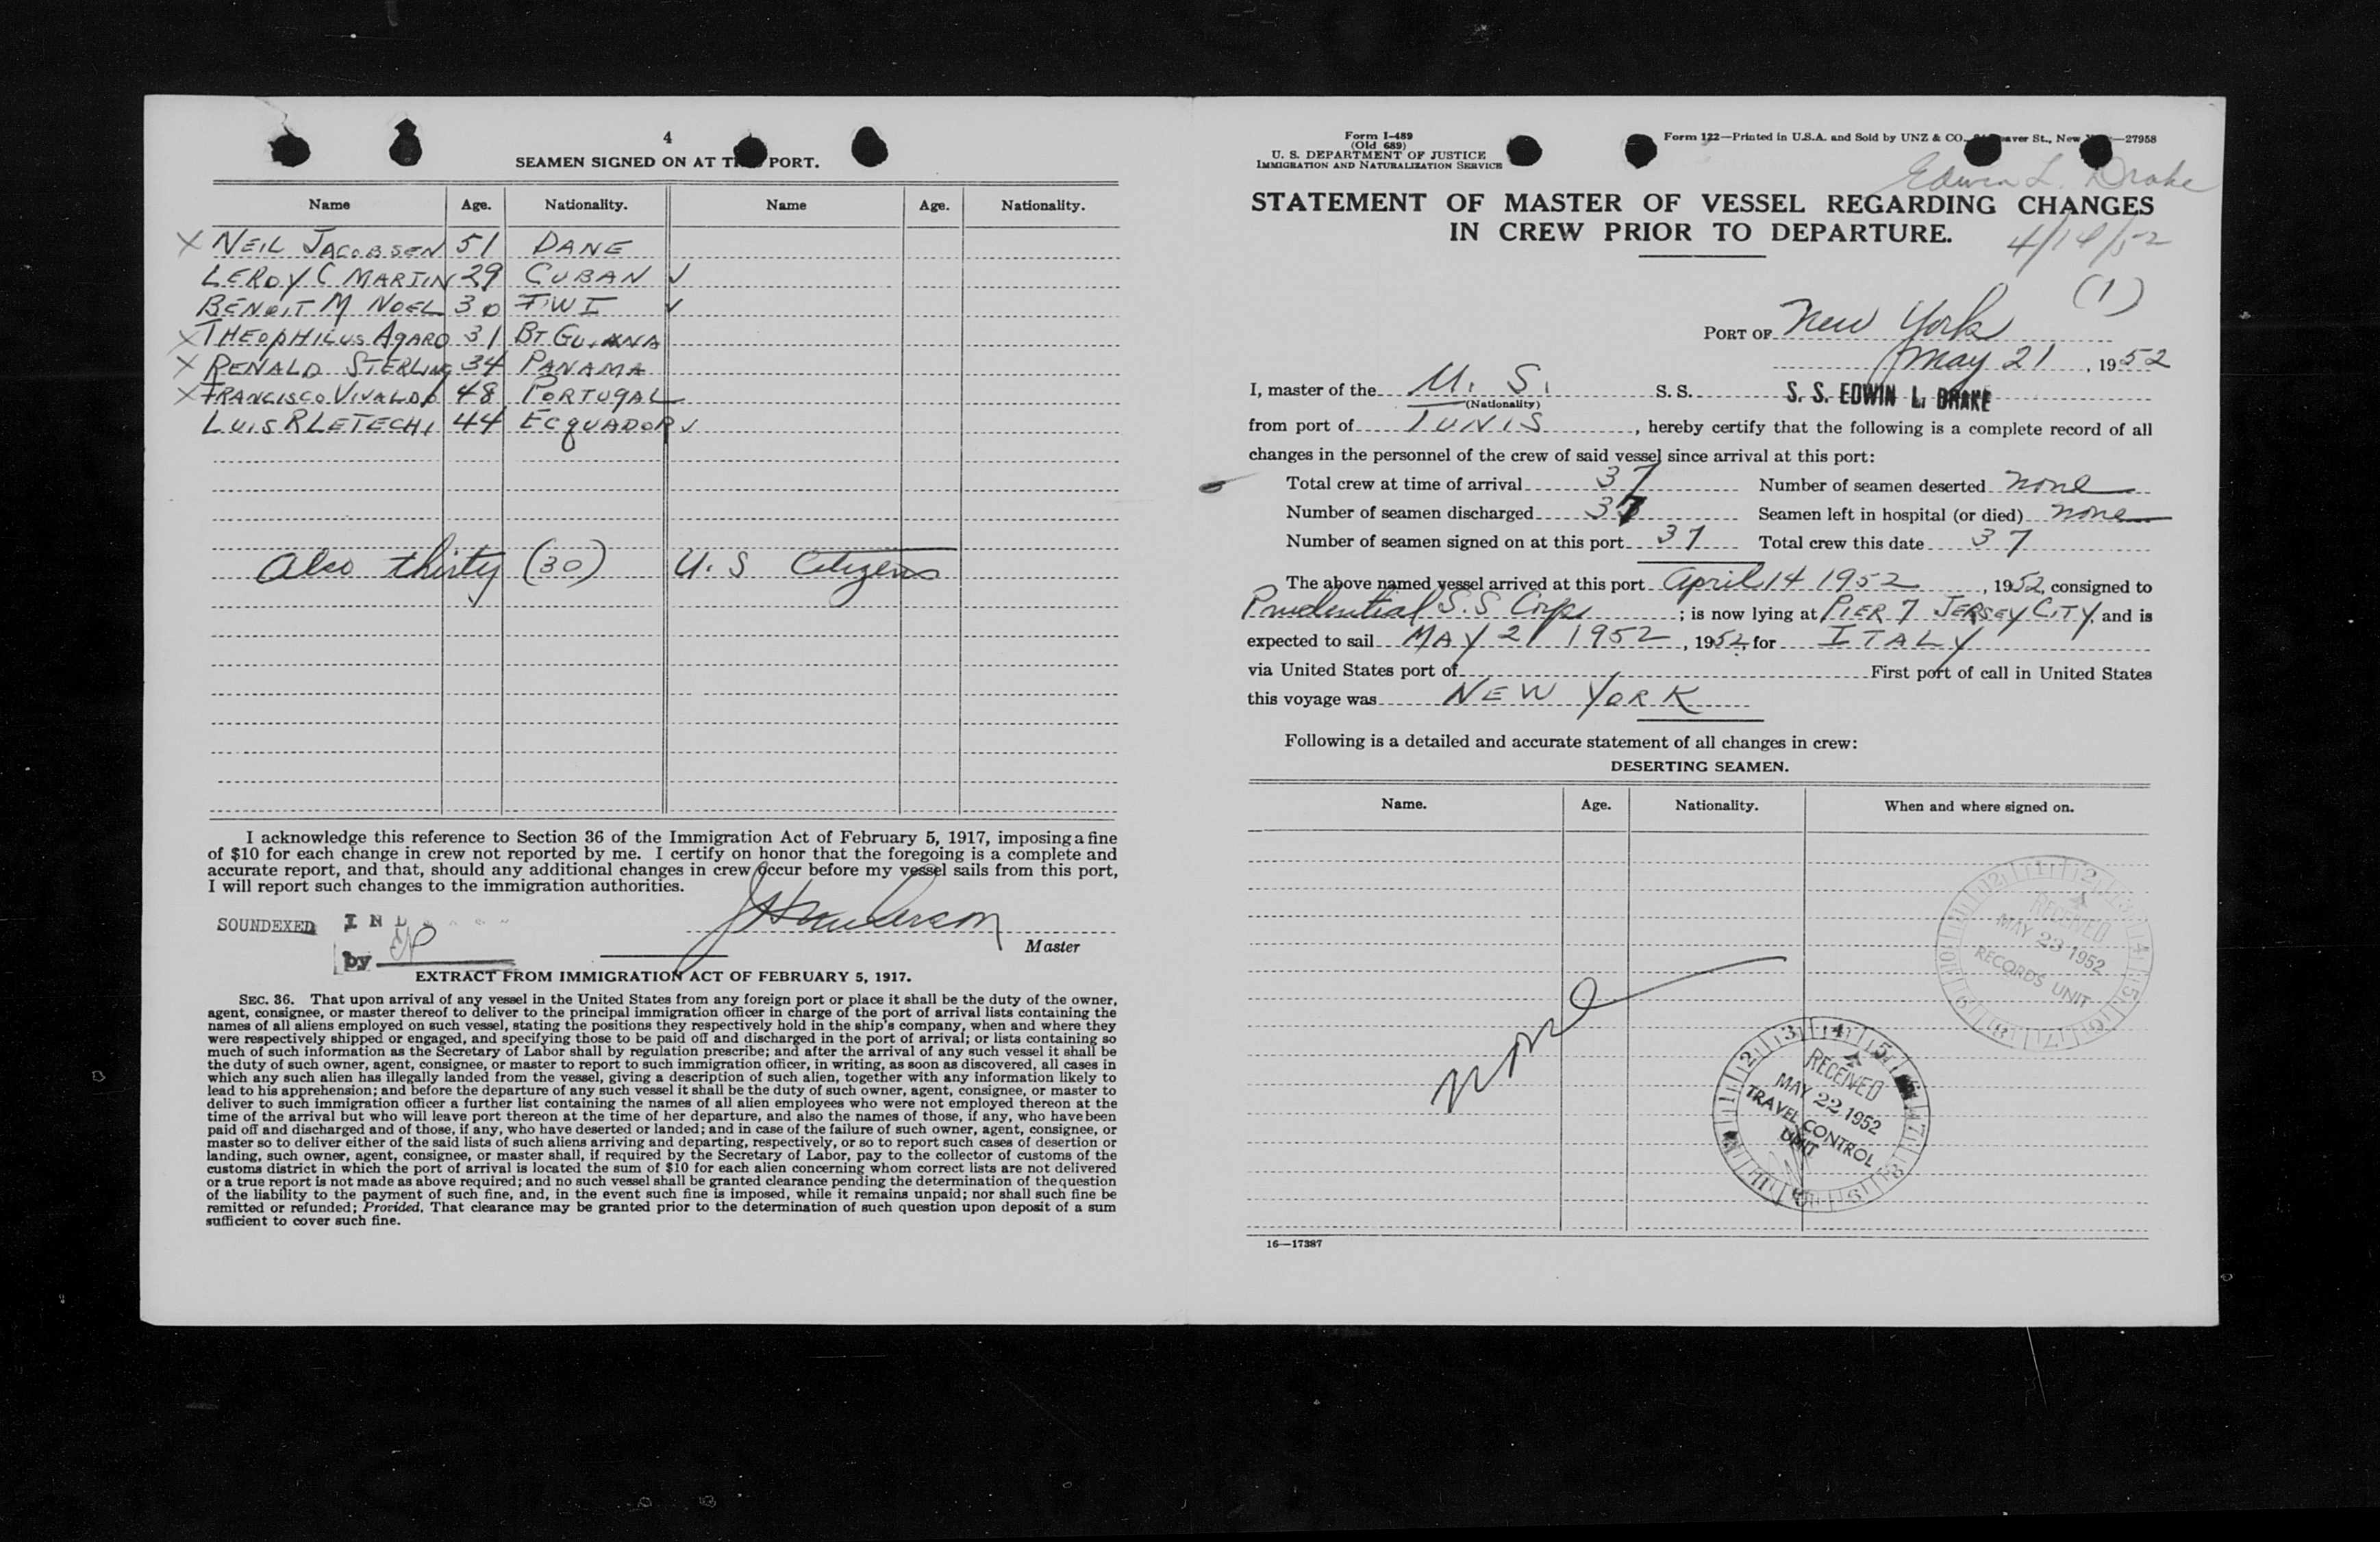 4
SEAMEN SIGNED ON AT PORT.
Name Age. Nationality. Name Age. Nationality.
X NEIL JACOBSEN 51 DANE
LEROY C MARTIN 29 CUBAN ✓
BENOIT M NOEL 30 FWI ✓
X THEOPHILUS AGARD 31 BT GUIANA
X RENALD STERLING 34 PANAMA
X FRANCISCO VIVALDO 48 PORTUGAL
LUIS R LETECHI 44 ECQUADOR ✓
Also thirty (30) U.S Citizens
I acknowledge this reference to Section 36 of the Immigration Act of February 5, 1917, imposing a fine
of $10 for each change in crew not reported by me. I certify on honor that the foregoing is a complete and
accurate report, and that, should any additional changes in crew occur before my vessel sails from this port,
I will report such changes to the immigration authorities.
SOUNDEXED IND
by
Master
EXTRACT FROM IMMIGRATION ACT OF FEBRUARY 5, 1917.
SEC. 36. That upon arrival of any vessel in the United States from any foreign port or place it shall be the duty of the owner,
agent, consignee, or master thereof to deliver to the principal immigration officer in charge of the port of arrival lists containing the
names of all aliens employed on such vessel, stating the positions they respectively hold in the ship's company, when and where they
were respectively shipped or engaged, and specifying those to be paid off and discharged in the port of arrival; or lists containing so
much of such information as the Secretary of Labor shall by regulation prescribe; and after the arrival of any such vessel it shall be
the duty of such owner, agent, consignee, or master to report to such immigration officer, in writing, as soon as discovered, all cases in
which any such alien has illegally landed from the vessel, giving a description of such alien, together with any information likely to
lead to his apprehension; and before the departure of any such vessel it shall be the duty of such owner, agent, consignee, or master to
deliver to such immigration officer a further list containing the names of all alien employees who were not employed thereon at the
time of the arrival but who will leave port thereon at the time of her departure, and also the names of those, if any, who have been
paid off and discharged and of those, if any, who have deserted or landed; and in case of the failure of such owner, agent, consignee, or
master so to deliver either of the said lists of such aliens arriving and departing, respectively, or so to report such cases of desertion or
landing, such owner, agent, consignee, or master shall, if required by the Secretary of Labor, pay to the collector of customs of the
customs district in which the port of arrival is located the sum of $10 for each alien concerning whom correct lists are not delivered
or a true report is not made as above required; and no such vessel shall be granted clearance pending the determination of the question
of the liability to the payment of such fine, and, in the event such fine is imposed, while it remains unpaid; nor shall such fine be
remitted or refunded; Provided, That clearance may be granted prior to the determination of such question upon deposit of a sum
sufficient to cover such fine.
Form I-489
(Old 689)
U. S. DEPARTMENT OF JUSTICE
IMMIGRATION AND NATURALIZATION SERVICE
Form 122—Printed in U.S.A. and Sold by UNZ & CO., St., New —27958
Edwin L. Drake
STATEMENT OF MASTER OF VESSEL REGARDING CHANGES
IN CREW PRIOR TO DEPARTURE.
4/14/52
(1)
PORT OF New York
May 21, 1952
I, master of the U. S. S. S. S. S. EDWIN L. DRAKE
(Nationality)
from port of TUNIS, hereby certify that the following is a complete record of all
changes in the personnel of the crew of said vessel since arrival at this port:
Total crew at time of arrival 37 Number of seamen deserted none
Number of seamen discharged 37 Seamen left in hospital (or died) none
Number of seamen signed on at this port 37 Total crew this date 37
The above named vessel arrived at this port April 14 1952, 1952, consigned to
Prudential S.S Corp; is now lying at PIER 7 JERSEY CITY, and is
expected to sail MAY 21 1952, 1952, for ITALY
via United States port of First port of call in United States
this voyage was NEW YORK
Following is a detailed and accurate statement of all changes in crew:
DESERTING SEAMEN.
Name. Age. Nationality. When and where signed on.
none
RECEIVED
MAY 23 1952
RECORDS UNIT
RECEIVED
MAY 22 1952
TRAVEL CONTROL
UNIT
16—17387